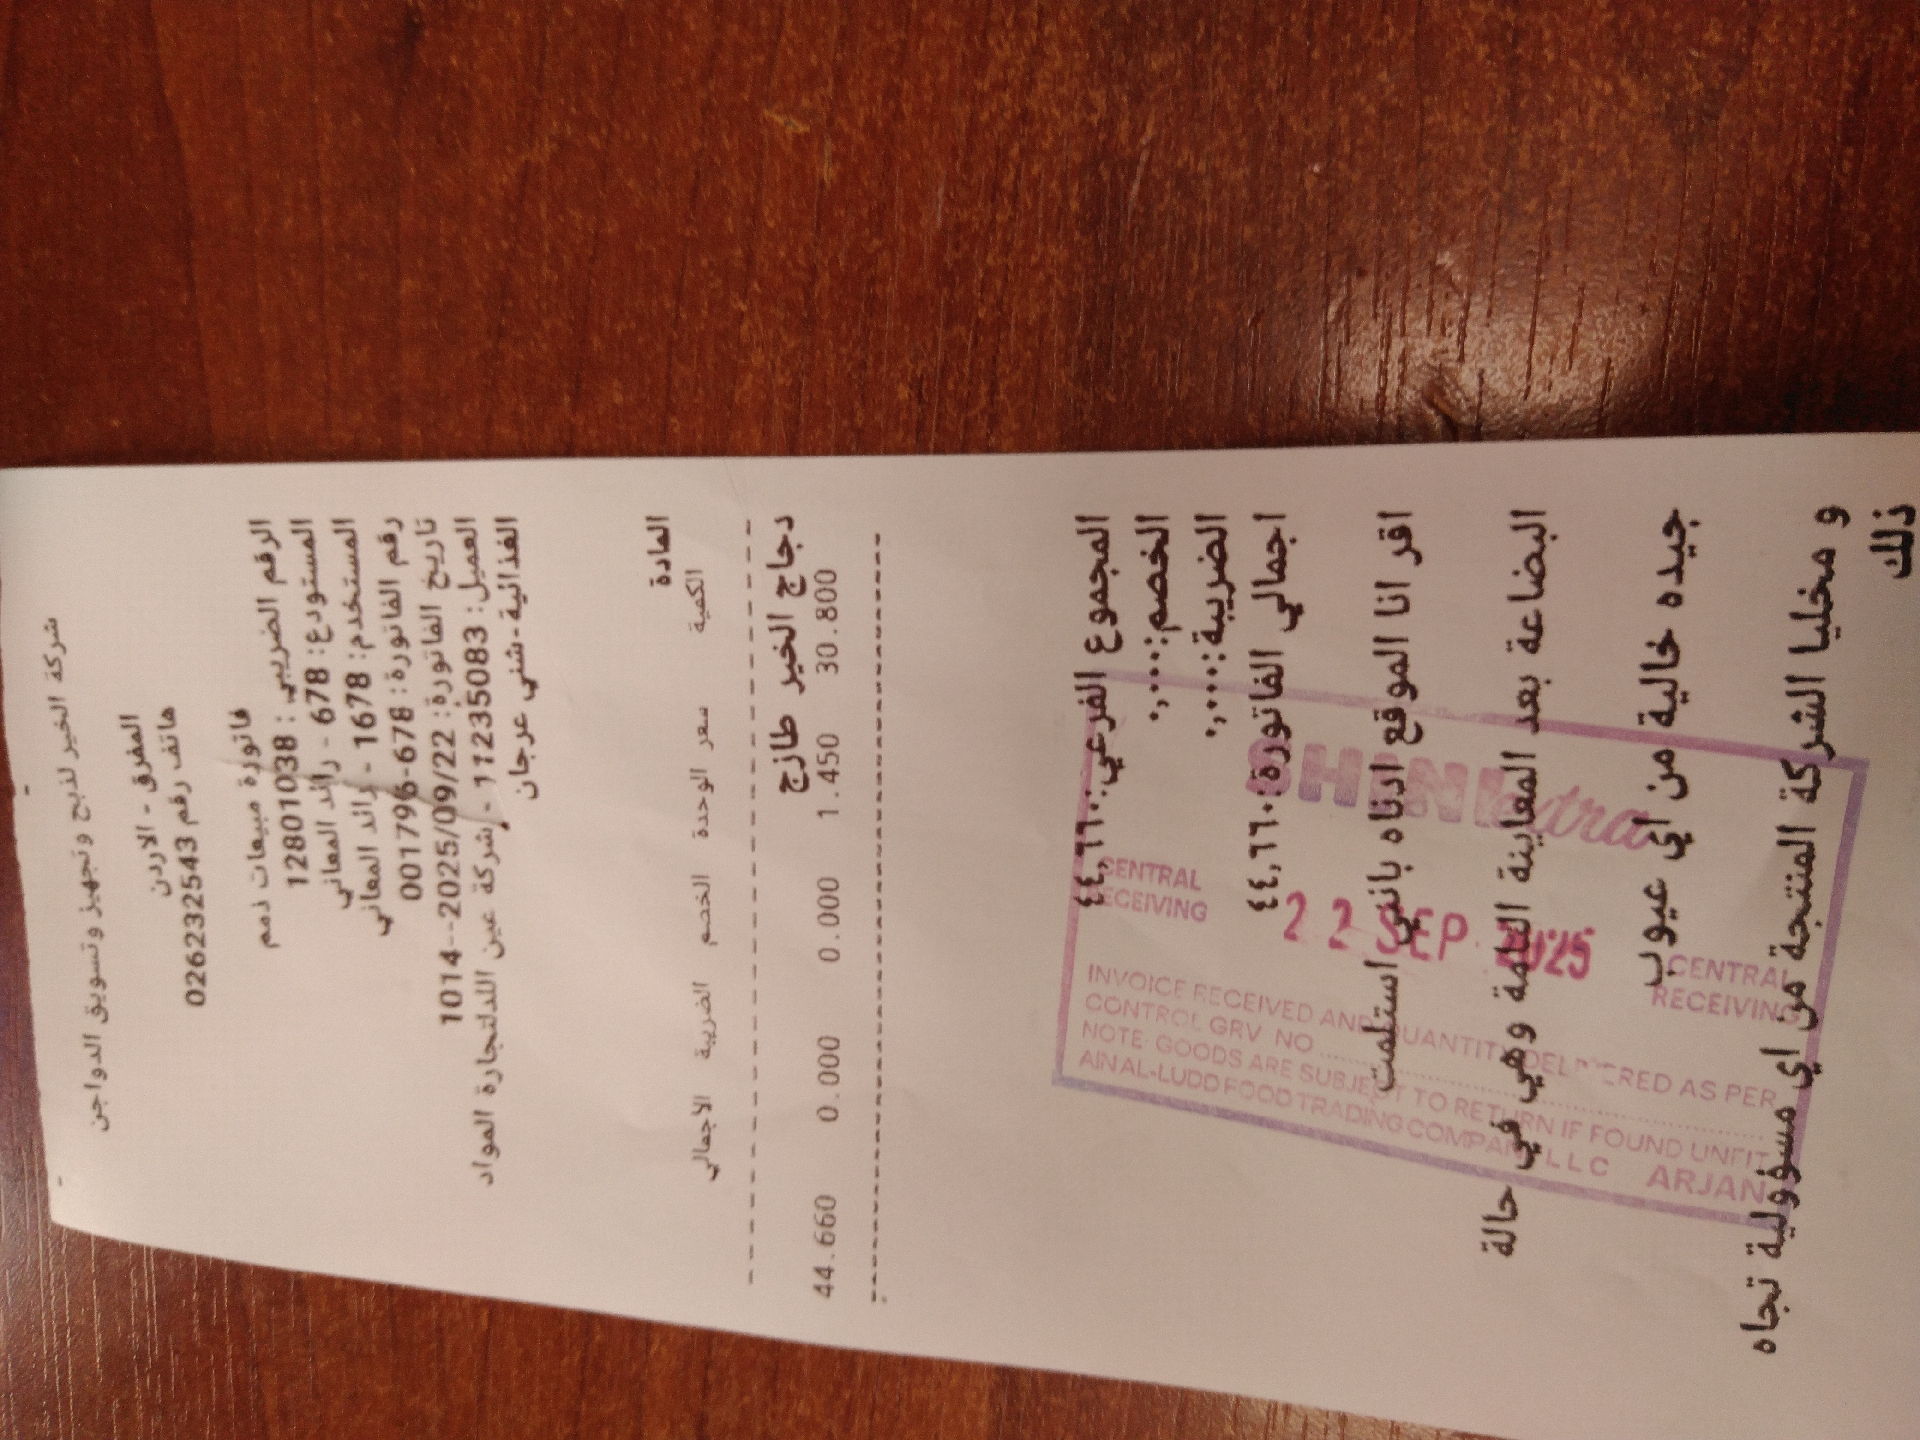 شركة الخير لذبح و تجهيز و تسويق الدواجن
المفرق - الاردن
هاتف رقم 026232543
فاتورة مبيعات ذمم
الرقم الضريبي : 12801038
المستودع: 678 - رائد المعاني
المستخدم: 1678 - رائد المعاني
رقم الفاتورة: 678-001796
تاريخ الفاتورة: 2025/09/22
العميل: 11235083 - شركة عين اللدلتجارة المواد
الغذائية-شني عرجان
1014--
المادة
الكمية سعر الوحدة الخصم الضريبة الاجمالي
دجاج الخير طازج
30.800 1.450 0.000 0.000 44.660
المجموع الفرعي: ٤٤,٦٦٠
الخصم: ٠,٠٠٠
الضريبة: ٠,٠٠٠
اجمالي الفاتورة: ٤٤,٦٦٠
اقر انا الموقع ادناه بانني استلمت
البضاعة بعد المعاينة التامة وهي في حالة
جيده خالية من اي عيوب
و مخليا الشركة المنتجة من اي مسؤولية تجاه
ذلك
SHINI extra
CENTRAL
RECEIVING
22 SEP 2025
CENTRAL
RECEIVING
INVOICE RECEIVED AND QUANTITY DELIVERED AS PER
CONTROL GRV NO
NOTE: GOODS ARE SUBJECT TO RETURN IF FOUND UNFIT
AIN AL-LUDD FOOD TRADING COMPANY LLC ARJAN